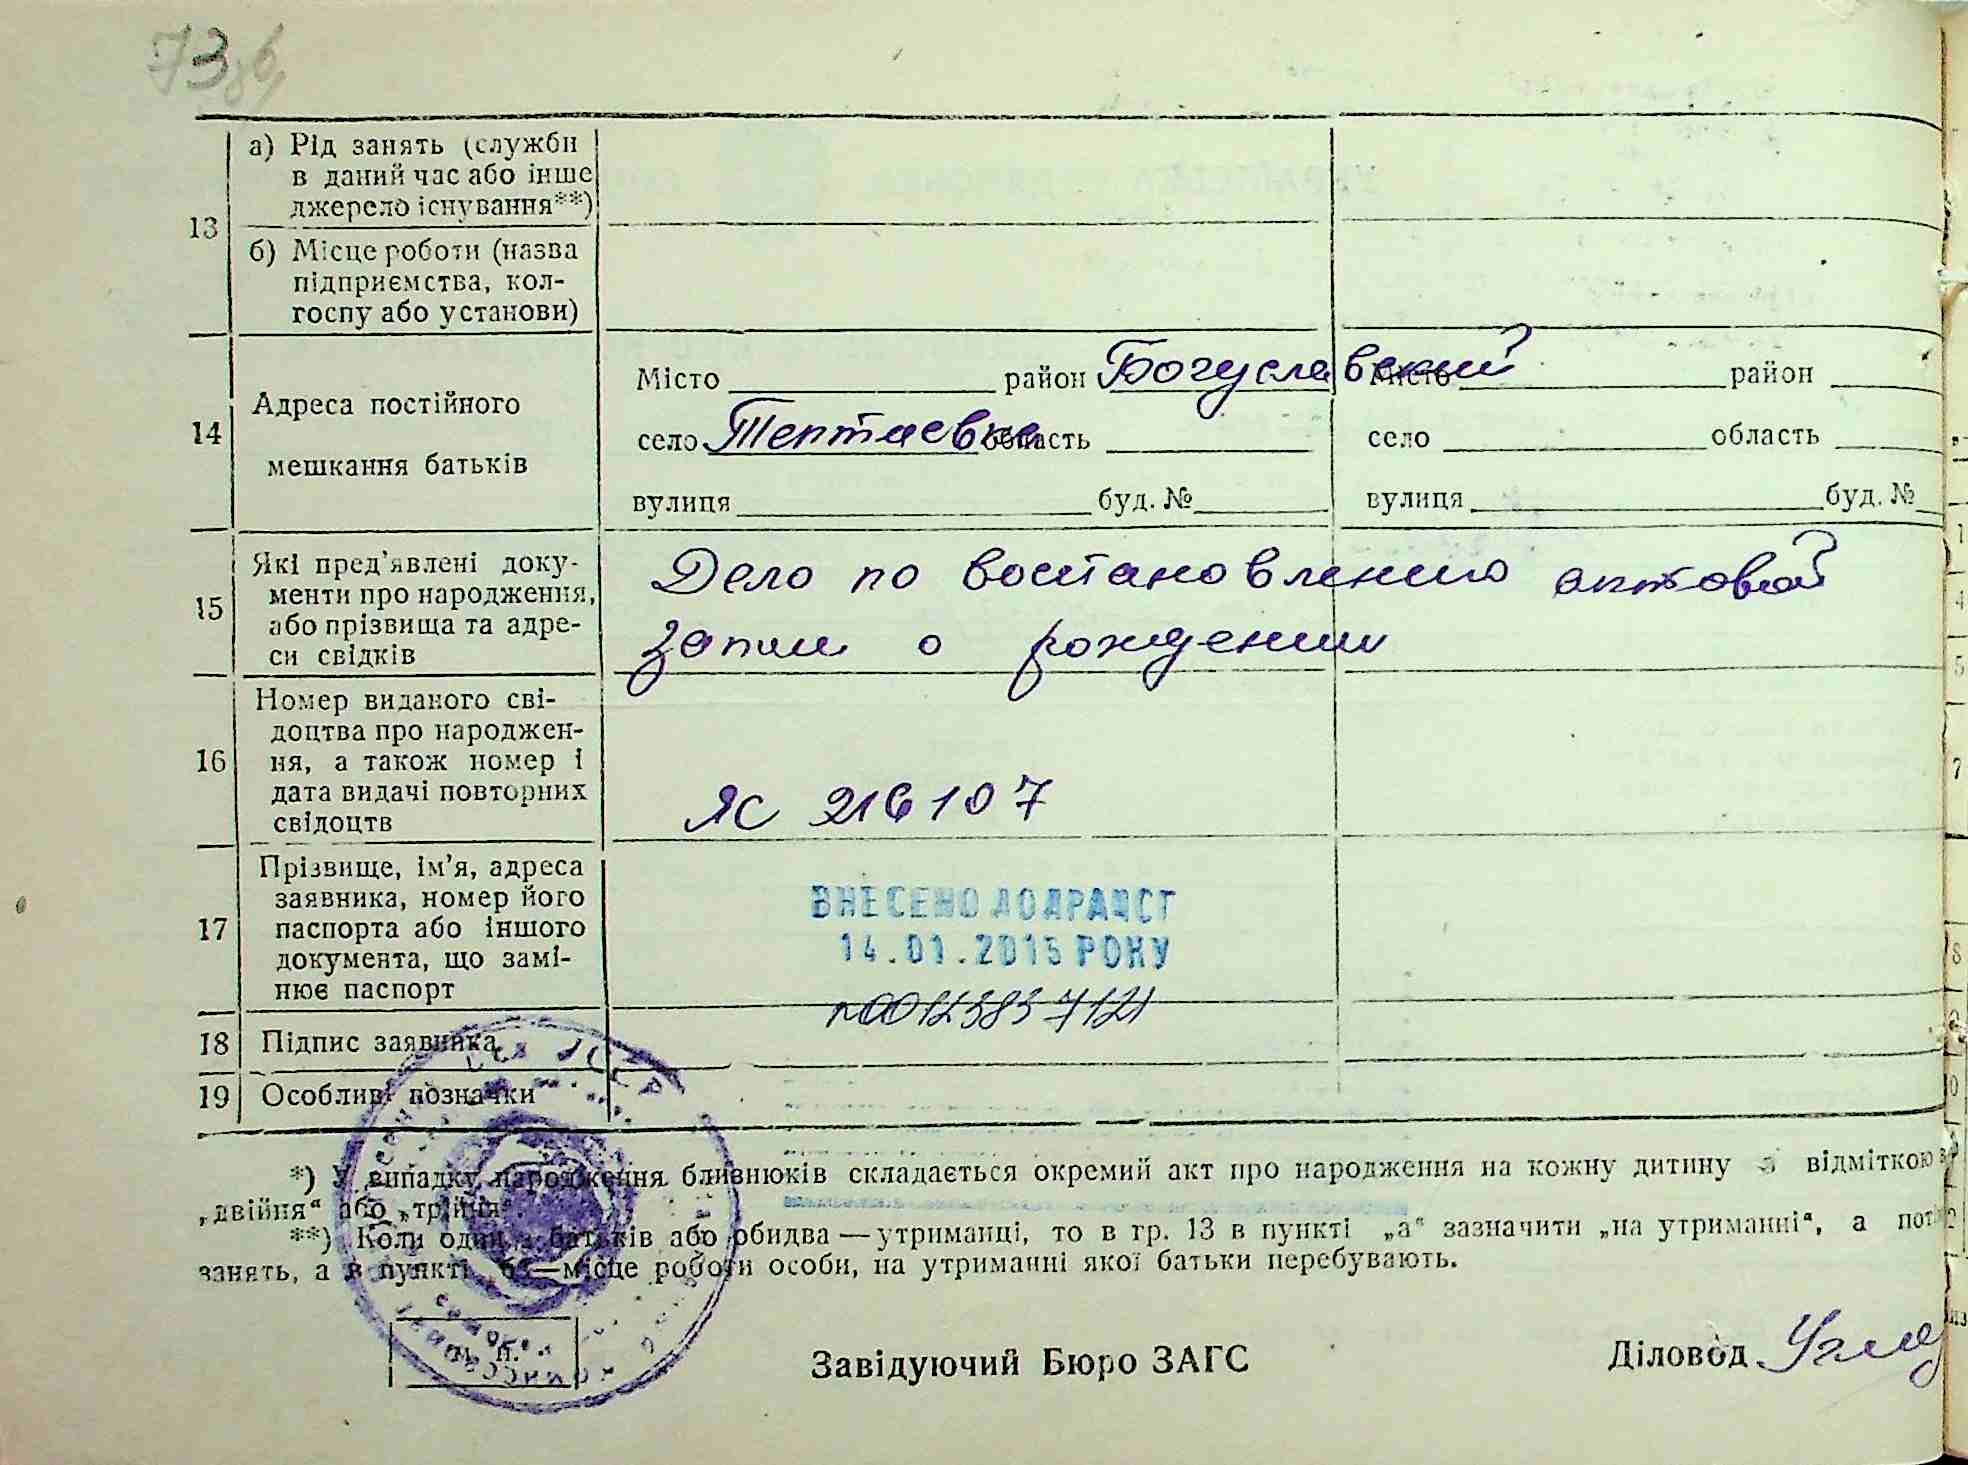 73
13
а) Рід занять (служби
в даний час або інше
джерело існування**)
б) Місце роботи (назва
підприємства, кол-
госпу або установи)
14
Адреса постійного
мешкання батьків
Місто район Богуславский
село Тептиевка область
вулиця буд. №
Місто район
село область
вулиця буд. №
15
Які пред'явлені доку-
менти про народження,
або прізвища та адре-
си свідків
Дело по востановлению актовой
записи о рождении
16
Номер виданого сві-
доцтва про народжен-
ня, а також номер і
дата видачі повторних
свідоцтв
ЯС 216107
17
Прізвище, ім'я, адреса
заявника, номер його
паспорта або іншого
документа, що замі-
нює паспорт
ВНЕСЕНО ДО ДРАЦСГ
14.01.2015 РОКУ
18
Підпис заявника
19
Особливі позначки
*) У випадку народження близнюків складається окремий акт про народження на кожну дитину з відміткою
„двійня“ або „трійня“.
**) Коли один з батьків або обидва — утриманці, то в гр. 13 в пункті „а“ зазначити „на утриманні“, а
занять, а в пункті „б“—місце роботи особи, на утриманні якої батьки перебувають.
м. п.
Завідуючий Бюро ЗАГС
Діловод